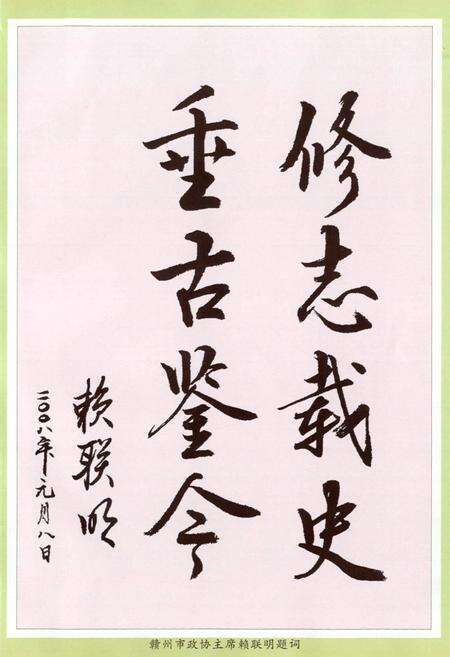 修志载史
垂古鉴今
赖联明
二〇〇八年元月八日
赣州市政协主席赖联明题词